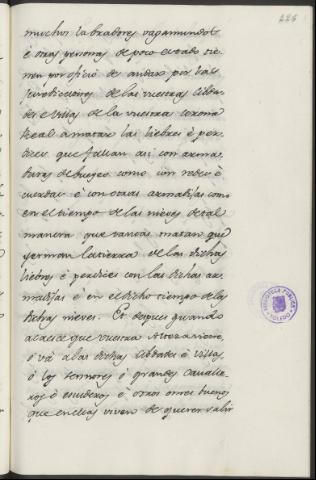 226
muchos labradores vagamundos
é otras personas de poco estado tie-
nen por oficio de andar por las
jurisdicciones de las vuestras cibda-
des e villas de la vuestra corona
Real a matar las liebres é per-
dices que fallan asi con arma-
duras de buyeco como con redes é
cuerdas é con otras armadijas como
en el tiempo de las nieves de tal
manera que tantas matan que
yerman la tierra de las dichas
liebres é perdices con las dichas ar-
madijas é en el dicho tiempo de las
dichas nieves. Et despues quando
acaesce que vuestra Alteza viene,
ó vá a las dichas cibdades é villas
ó los sennores ó grandes cavalle-
ros ó escuderos é otros omes buenos
que en ellas viven de querer salir
BIBLIOTECA PUBLICA
TOLEDO